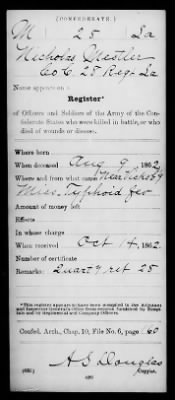 (CONFEDERATE)
M 25 La
Nicholas Mestler
Co C, 25 Regt La
Name appears on a
Register*
of Officers and Soldiers of the Army of the Confederate States who were killed in battle, or who
died of wounds or disease.
Where born
When deceased Aug 9, 1862
Where and from what cause Near
Miss. Typhoid fev
Amount of money left
Effects
In whose charge
When received Oct 14, 1862.
Number of certificate
Remarks: Quar'y ret 25
*This register appears to have been compiled in the Adjutant
and Inspector General's Office from
and of Regimental and Company Officers.
Confed. Arch., Chap. 10, File No. 6, page 160
A S Douglas
Copyist.